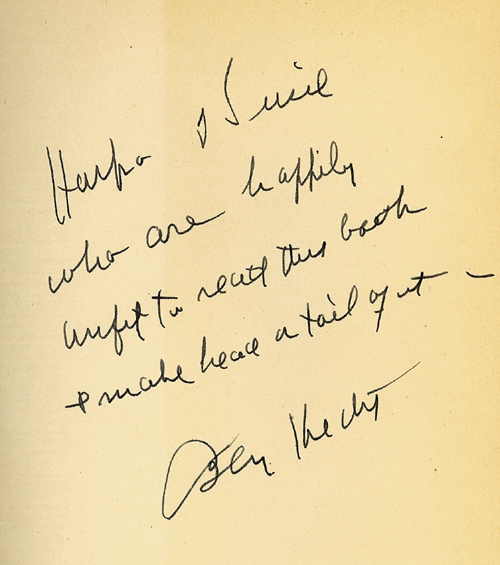 Harpo & Susie
who are happily
unfit to read this book
& make head or tail of it —
Ben Hecht